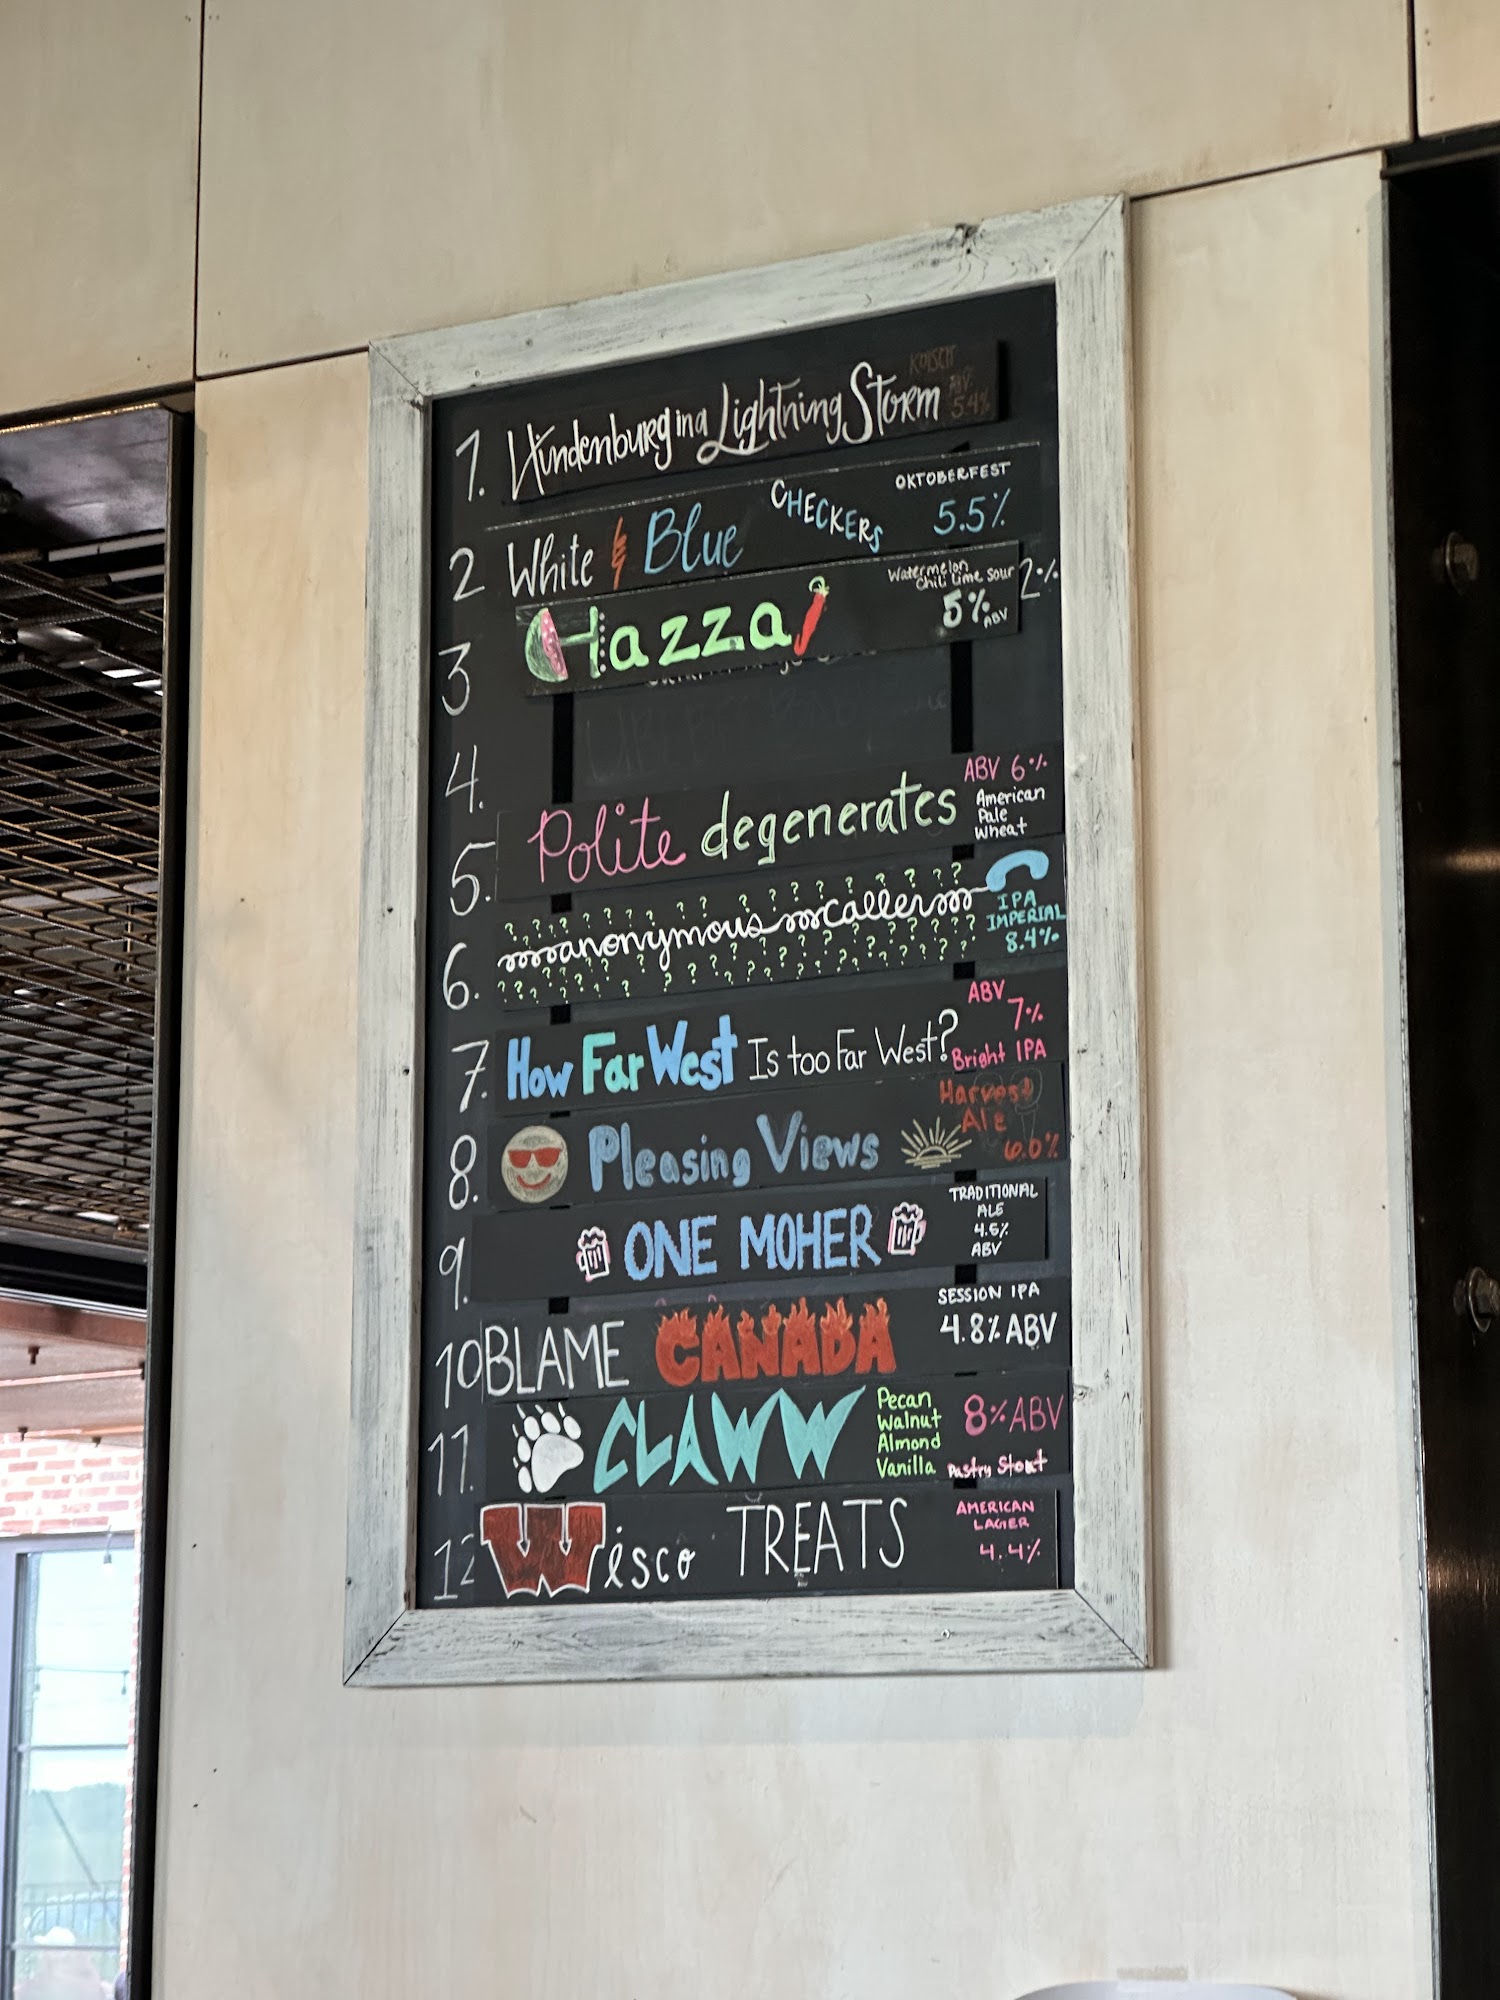 1. Hindenburg in a Lightning Storm KOLSCH ABV 5.4%
2 White & Blue CHECKERS OKTOBERFEST 5.5%
3 Hazza! Watermelon Chili Lime Sour 5% ABV 2%
4.
5. Polite degenerates ABV 6% American Pale Wheat
6. anonymous caller IPA IMPERIAL 8.4%
7. How Far West Is too Far West? ABV 7% Bright IPA
8. Pleasing Views Harvest Ale 6.0%
9. ONE MOHER TRADITIONAL ALE 4.5% ABV
10 BLAME CANADA SESSION IPA 4.8% ABV
11. CLAWW Pecan Walnut Almond Vanilla 8% ABV Pastry Stout
12 Wisco TREATS AMERICAN LAGER 4.4%